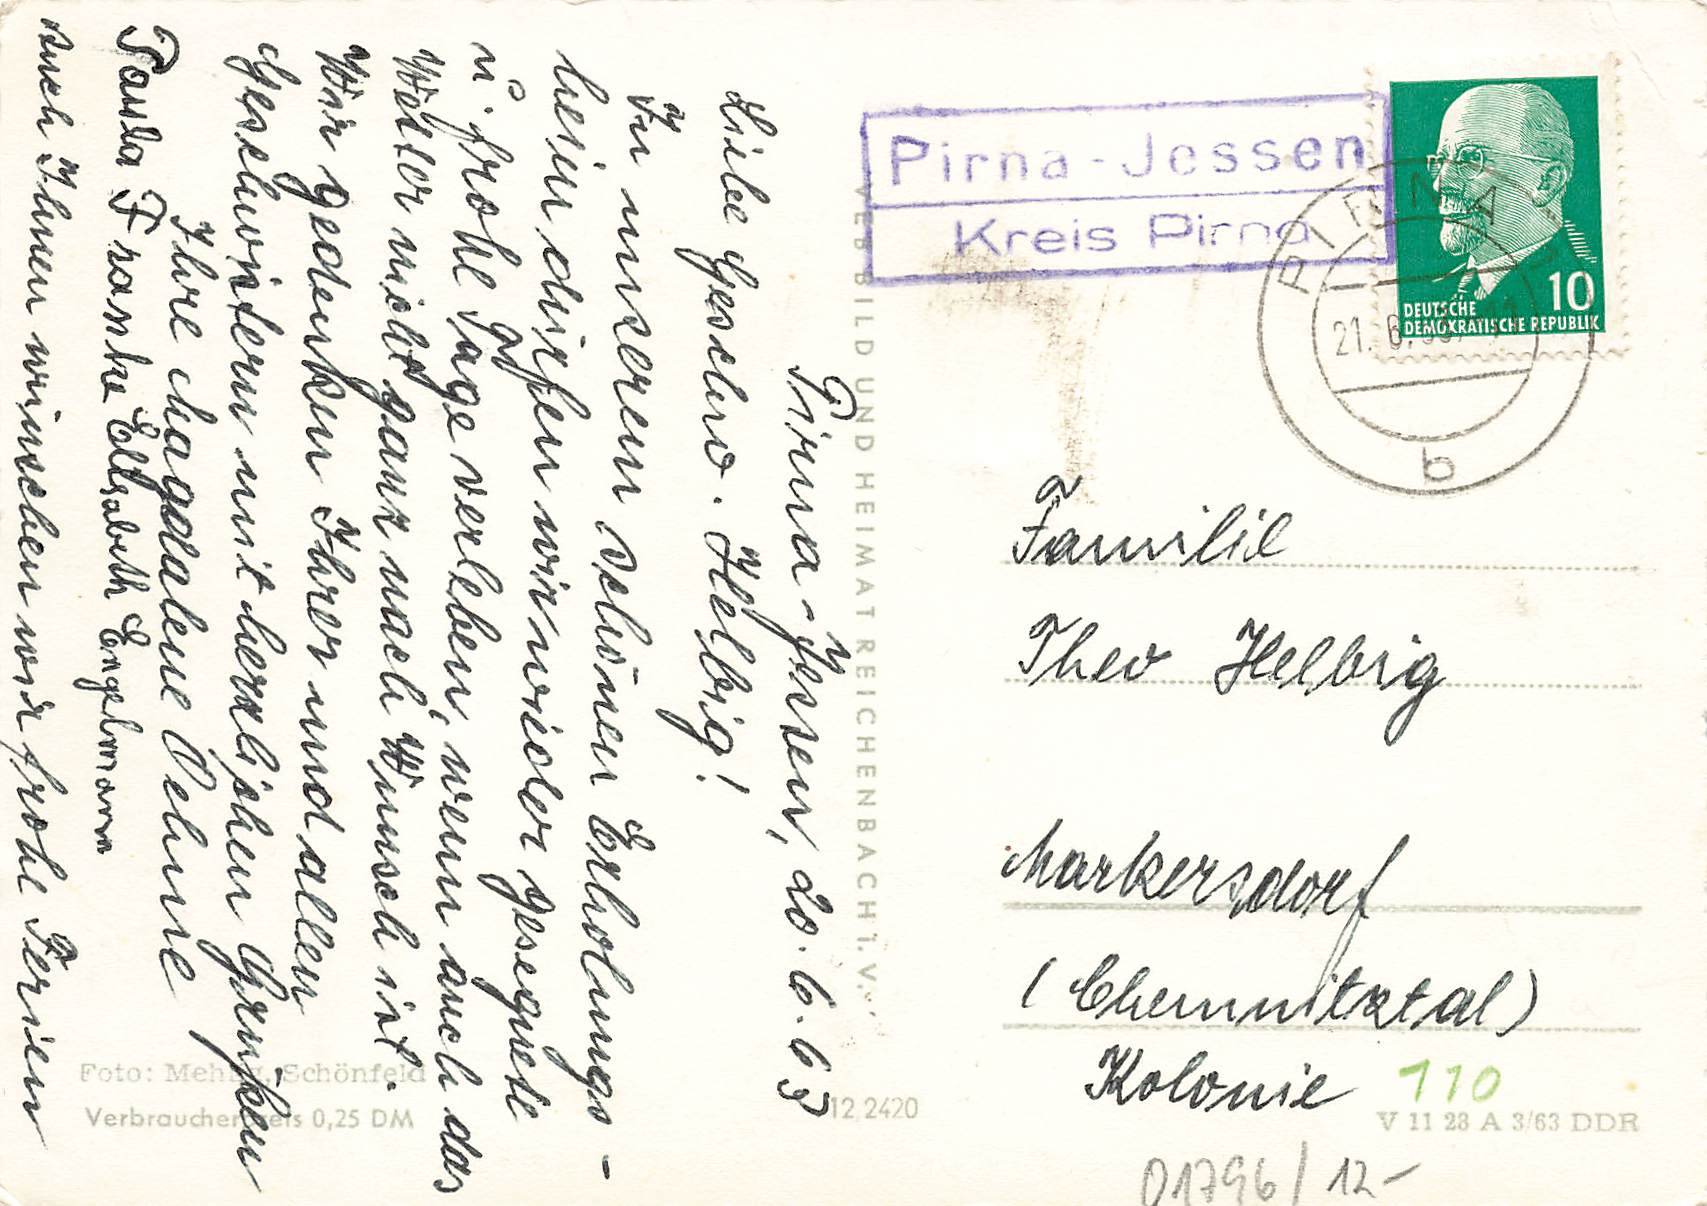 Pirna-Jessen, 20. 6. 63
Liebe Geschw. Helbig!
In unserem schönen Erholungs-
heim dürfen wir wieder gesegnete
u. frohe Tage verleben, wenn auch das
Wetter nicht ganz nach Wunsch ist.
Wir gedenken Ihrer und allen
Geschwistern mit herzlichen Grüßen
Ihre Magdalene Oehme
Paula Franke Elisabeth Engelmann
Auch Ihnen wünschen wir frohe Ferien
Foto: Mehlig, Schönfeld
Verbraucherpreis 0,25 DM
VEB BILD UND HEIMAT REICHENBACH i. V.
12,2420
Pirna-Jessen
Kreis Pirna
PIRNA
21. 6. 63
b
10
DEUTSCHE
DEMOKRATISCHE REPUBLIK
Familie
Theo Helbig
Markersdorf
(Chemnitztal)
Kolonie
110
V 11 28 A 3/63 DDR
D1796/12-